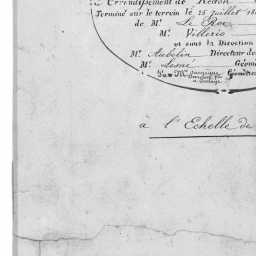 Arrondissement de Redon
Terminé sur le terrein le 25 juillet 18
de Mr. Le Roc
Mr. Villerio
et sous la Direction
Mr. Aubelin Directeur des
Mr. Lesné Géom
Par Mr. Géomètre
à l'Echelle de